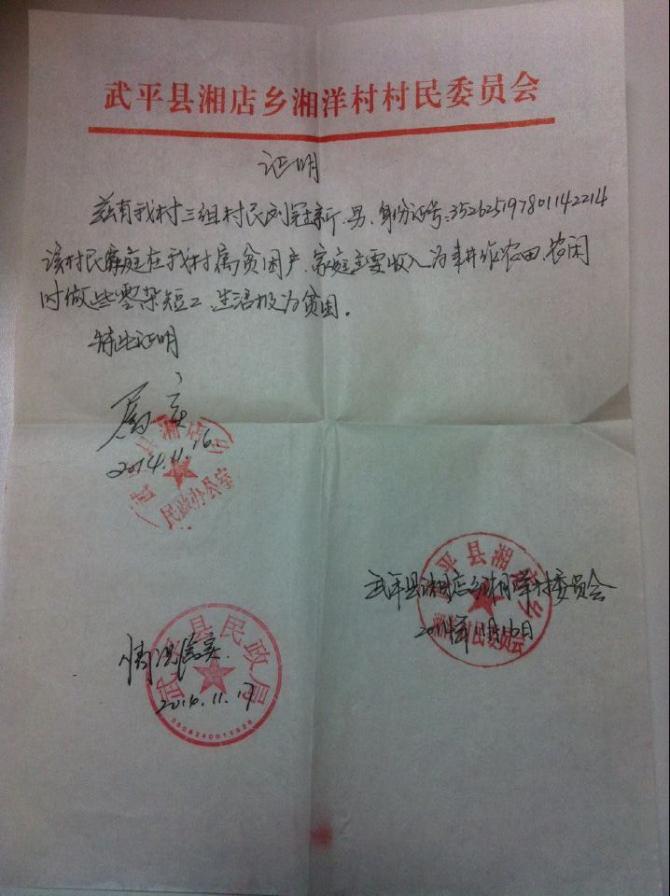 武平县湘店乡湘洋村村民委员会
证明
兹有我村三组村民刘冠新,男,身份证号:352625197801142214
该村民家庭在我村属贫困户,家庭主要收入为耕作农田,农闲
时做些零杂短工,生活极为贫困。
特此证明
属实
2014.11.16.
县湘店
民政办公室
武平县湘店乡湘洋村委员会
平县湘
2014年11月16日
情况属实.
武平县民政局
2016.11.17